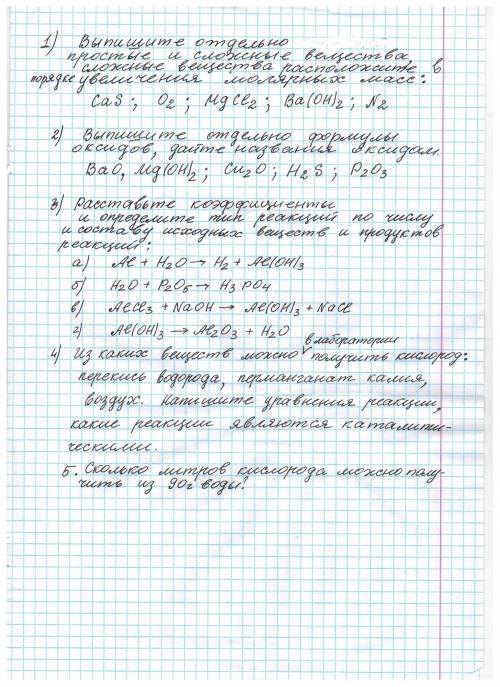 1) Выпишите отдельно
простые и сложные вещества
сложные вещества расположите в
порядке увеличения молярных масс:
CaS; O2; MgCl2; Ba(OH)2; N2
2) Выпишите отдельно формулы
оксидов, дайте названия оксидам.
BaO, Mg(OH)2; Cu2O; H2S; P2O3
3) Расставьте коэффициенты
и определите тип реакций по числу
и составу исходных веществ и продуктов
реакций:
а) Al + H2O → H2 + Al(OH)3
б) H2O + P2O5 → H3PO4
в) AlCl3 + NaOH → Al(OH)3 + NaCl
г) Al(OH)3 → Al2O3 + H2O
4) Из каких веществ можно в лаборатории получить кислород:
перекись водорода, перманганат калия,
воздух. Напишите уравнения реакции,
какие реакции являются каталити-
ческими.
5. Сколько литров кислорода можно полу-
чить из 90г воды?